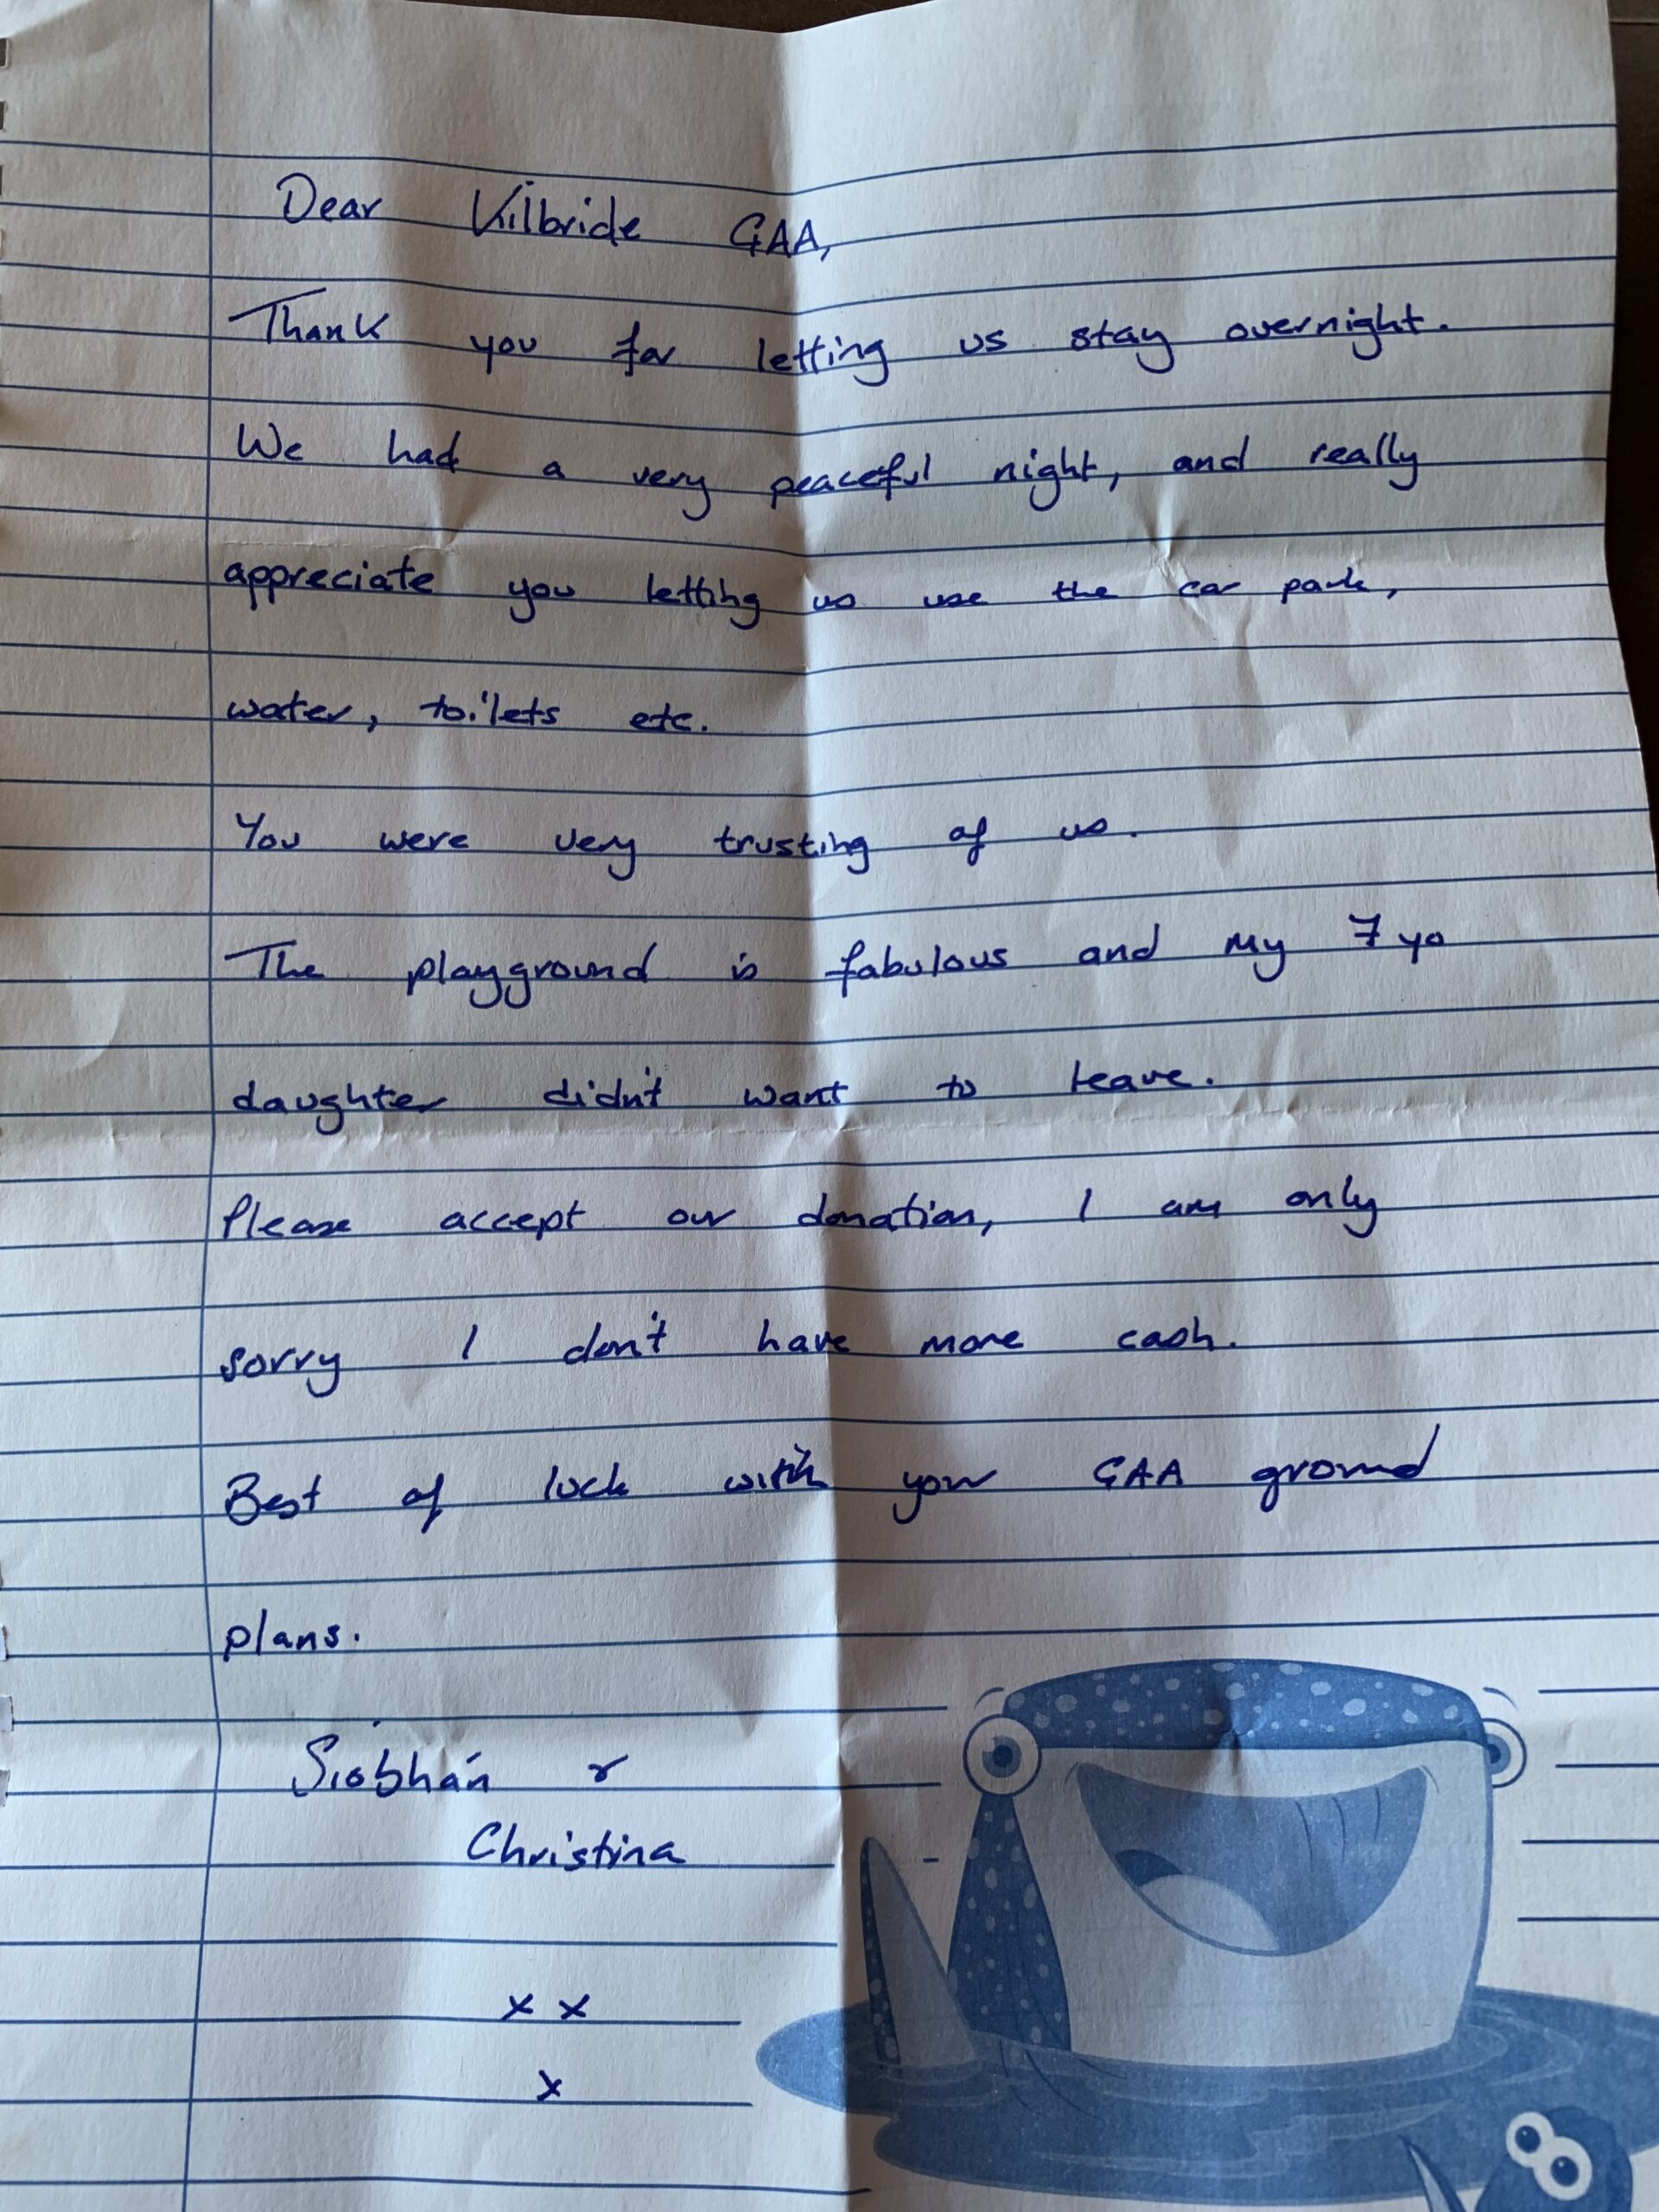 Dear Kilbride GAA,
Thank you for letting us stay overnight.
We had a very peaceful night, and really
appreciate you letting us use the car park,
water, toilets etc.
You were very trusting of us.
The playground is fabulous and my 7 yo
daughter didn't want to leave.
Please accept our donation, I am only
sorry I don't have more cash.
Best of luck with your GAA ground
plans.
Siobhán &
Christina
x x
x